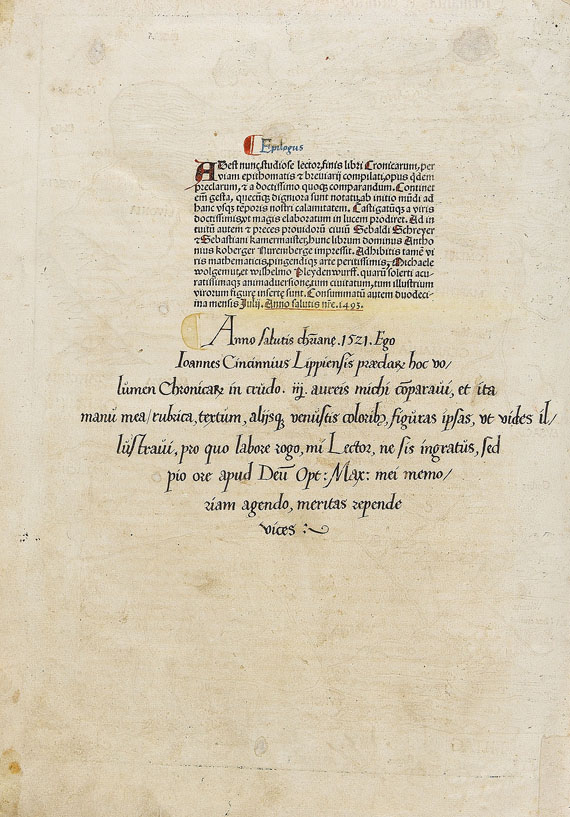 Epilogus
ADest nunc studiose lector finis libri Cronicarum per
viam epithomatis ⁊ breviarij compilati, opus q̄dem
preclarum, ⁊ a doctissimo quoqꝫ comparandum. Continet
em̄ gesta, quecūqꝫ digniora sunt notatu ab initio mūdi ad
hanc vsqꝫ tēporis nostri calamitatem. Castigatūqꝫ a viris
doctissimis vt magis elaboratum in lucem prodiret. Ad in
tuitū autem ⁊ preces prouidorū ciuiū Sebaldi Schreyer
⁊ Sebastiani kamermaister, hunc librum dominus Antho
nius koberger Nuremberge impressit. Adhibitis tamē vi
ris mathematicis, pingendiqꝫ arte peritissimis, Michaele
wolgemut, et wilhelmo Pleydenwurff. quarū solerti acu-
ratissimaqꝫ animaduersione, tum ciuitatum, tum illustrium
virorum figure inserte sunt. Consummatū autem duodeci
ma mensis Julij. Anno salutis nr̄e. 1493.
Anno salutis chr̄iane .1521. Ego
Ioannes Cincinnius Lippiensis præclarꝝ hoc vo/
lumen Chronicaꝝ in crudo . iij. aureis michi cōparaui, et ita
manū mea / rubrica, textum, alijsqꝫ venustis coloribꝫ, figuras ipsas, vt vides il/
lustraui, pro quo labore rogo, mi Lector, ne sis ingratus, sed
pio ore apud Deū Opt: Max: mei memo/
riam agendo, meritas repende
vices :~